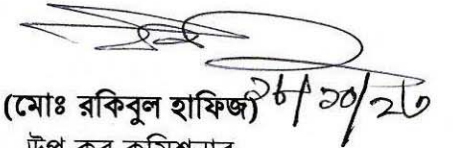 (মোঃ রকিবুল হাফিজ) ১৮/১০/২৩
উপ কর কমিশনার